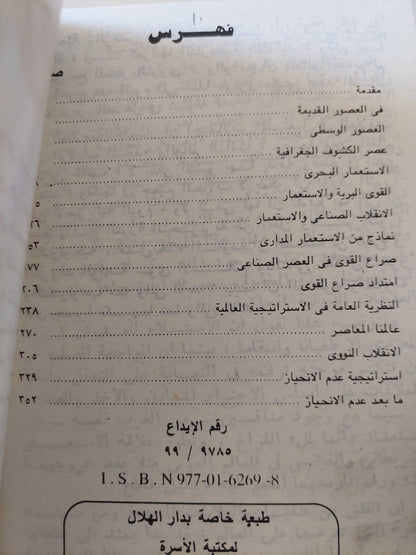 فهـــرس
صـ
مقدمة
فى العصور القديمة
العصور الوسطى
عصر الكشوف الجغرافية
الاستعمار البحرى
القوى البرية والاستعمار
الانقلاب الصناعى والاستعمار
نماذج من الاستعمار المدارى
صراع القوى فى العصر الصناعى
امتداد صراع القوى ٢٠٦
النظرية العامة فى الاستراتيجية العالمية ٢٣٨
عالمنا المعاصر ٢٧٠
الانقلاب النووى ٣٠٥
استراتيجية عدم الانحياز ٣٢٩
ما بعد عدم الانحياز ٣٥٢
رقم الإيداع
٩٧٨٥ / ٩٩
I . S . B . N 977-01-6269 -8
طبعة خاصة بدار الهلال
لمكتبة الأسرة